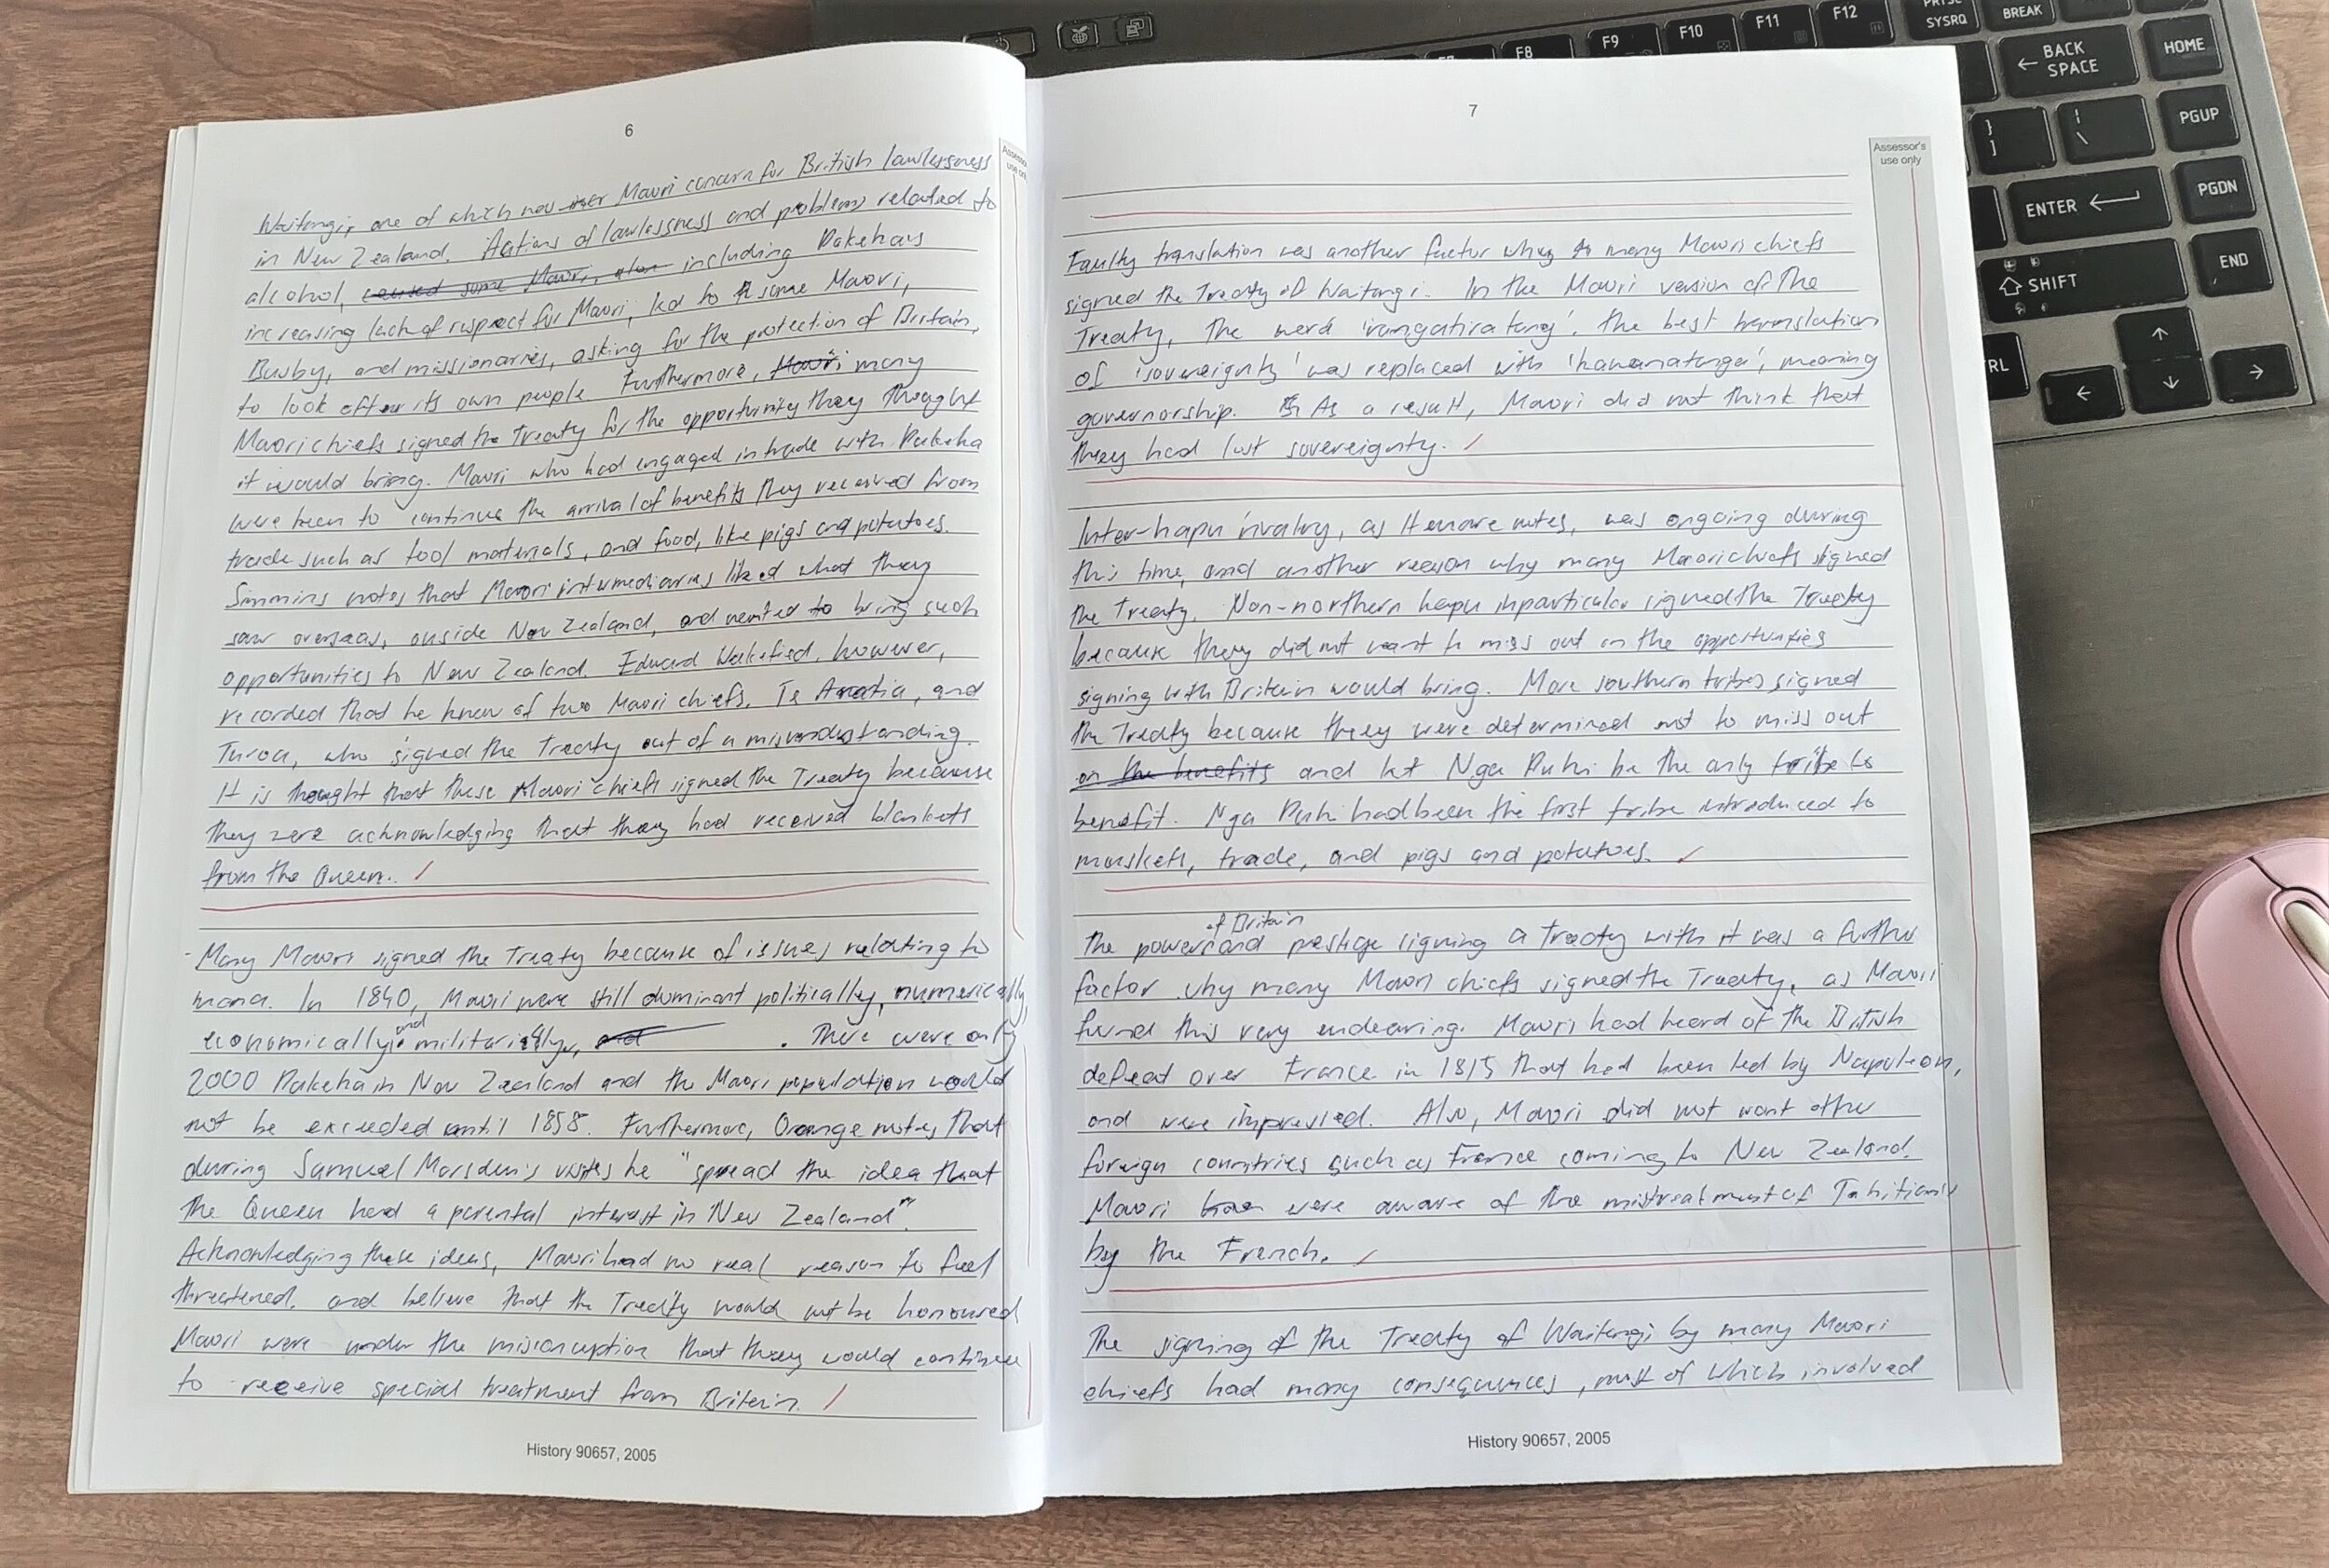 6
Assessor's
use only
Waitangi, one of which was Maori concern for British lawlessness
in New Zealand. Actions of lawlessness and problems related to
alcohol, caused some Maori, including Pakehas
increasing lack of respect for Maori, led to some Maori,
Busby, and missionaries, asking for the protection of Britain,
to look after its own people. Furthermore, Maori many
Maori chiefs signed the Treaty for the opportunity they thought
it would bring. Maori who had engaged in trade with Pakeha
were keen to continue the arrival of benefits they received from
trade such as tool materials, and food, like pigs and potatoes.
Simmins notes that Maori intermediaries liked what they
saw overseas, outside New Zealand, and wanted to bring such
opportunities to New Zealand. Edward Wakefied, however,
recorded that he knew of two Maori chiefs, Te and
Turoa, who signed the Treaty out of a misunderstanding.
It is thought that these Maori chiefs signed the Treaty because
they were acknowledging that they had received blankets
from the Queen.
- Many Maori signed the Treaty because of issues relating to
mana. In 1840, Maori were still dominant politically, numerically,
economically, and militarily, and . There were only
2000 Pakeha in New Zealand and the Maori population would
not be exceeded until 1858. Furthermore, Orange notes that
during Samuel Marsden's visits he "spread the idea that
the Queen had a parental interest in New Zealand".
Acknowledging these ideas, Maori had no real reason to feel
threatened, and believe that the Treaty would not be honoured
Maori were under the misconception that they would continue
to receive special treatment from Britain.
History 90657, 2005
7
Assessor's
use only
Faulty translation was another factor why many Maori chiefs
signed the Treaty of Waitangi. In the Maori version of the
Treaty, the word 'rangatiratang', the best translation
of 'sovereignty' was replaced with 'kawanatanga', meaning
governorship. As a result, Maori did not think that
they had lost sovereignty.
Inter-hapu rivalry, as Henare notes, was ongoing during
this time, and another reason why many Maori chiefs signed
the Treaty. Non-northern hapu in particular signed the Treaty
because they did not want to miss out on the opportunities
signing with Britain would bring. More southern tribes signed
the Treaty because they were determined not to miss out
on the benefits and let Nga Puhi be the only tribe to
benefit. Nga Puhi had been the first tribe introduced to
muskets, trade, and pigs and potatoes.
of Britain
The power and prestige signing a treaty with it was a further
factor why many Maori chiefs signed the Treaty, as Maori
found this very endearing. Maori had heard of the British
defeat over France in 1815 that had been led by Napoleon,
and were impressed. Also, Maori did not want other
foreign countries such as France coming to New Zealand.
Maori were aware of the mistreatment of Tahitians
by the French.
The signing of the Treaty of Waitangi by many Maori
chiefs had many consequences, most of which involved
History 90657, 2005
F8
F9
F10
F11
F12
PRTSC
SYSRQ
BREAK
BACK
SPACE
HOME
}
]
|
\
PGUP
ENTER
PGDN
SHIFT
END
RL